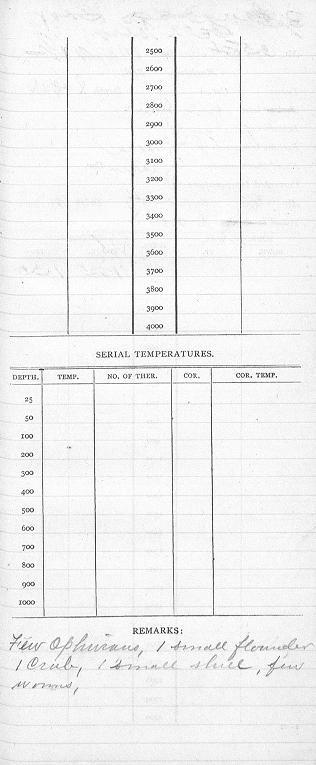 2500
2600
2700
2800
2900
3000
3100
3200
3300
3400
3500
3600
3700
3800
3900
4000
SERIAL TEMPERATURES.
DEPTH. TEMP. NO. OF THER. COR. COR. TEMP.
25
50
100
200
300
400
500
600
700
800
900
1000
REMARKS:
Few Ophiurans, 1 small flounder
1 Crab, 1 small shell, few
worms,